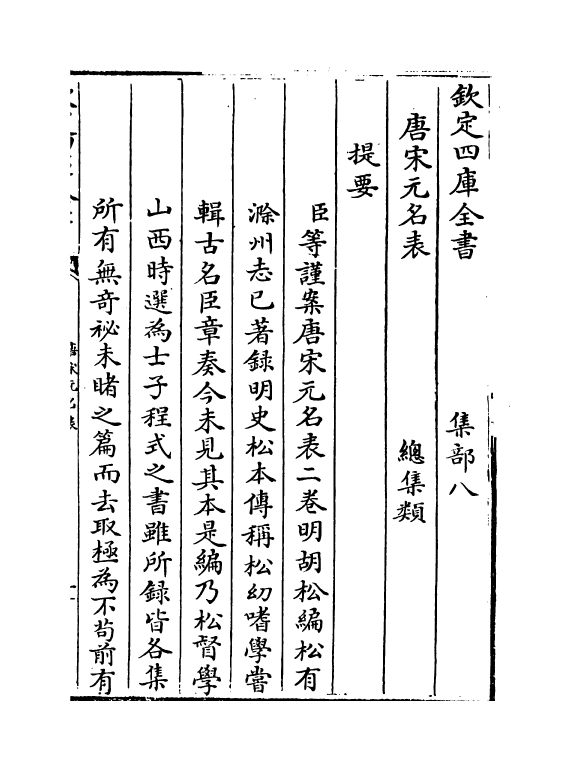 欽定四庫全書　集部八
唐宋元名表　總集類
提要
臣等謹案唐宋元名表二巻明胡松編松有
滁州志已著録明史松本傳稱松幼嗜學嘗
輯古名臣章奏今未見其本是編乃松督學
山西時選為士子程式之書雖所録皆各集
所有無奇祕未睹之篇而去取極為不苟前有
唐宋元名表